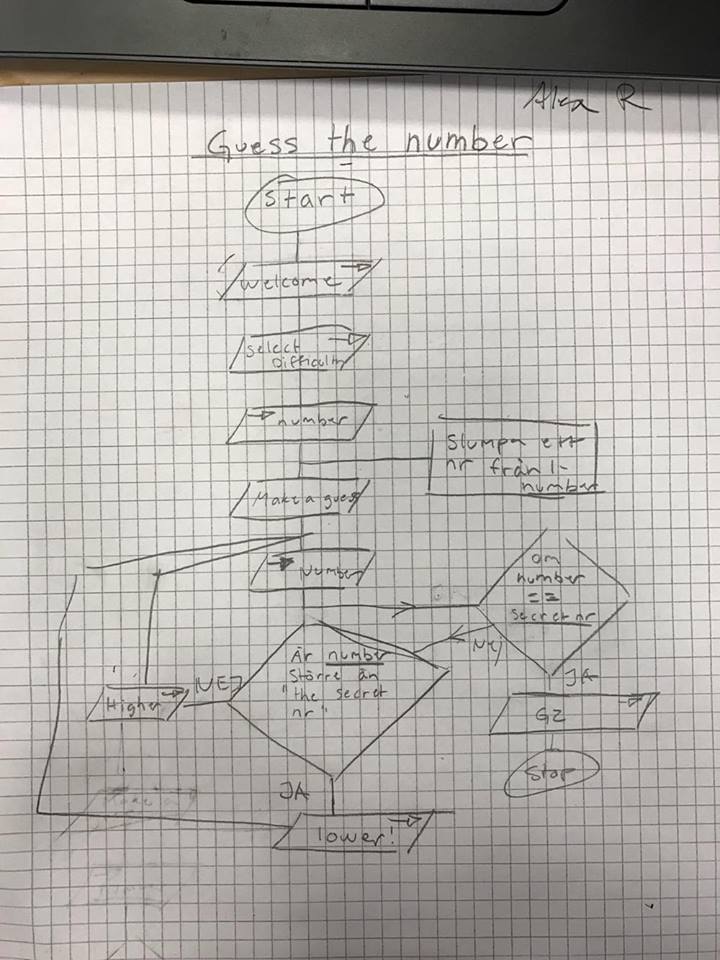 Alex R
Guess the number
Start
Welcome
Select
Difficulty
number
Slumpa ett
nr från 1-
number
Make a guess
Number
om
number
==
secret nr
NEJ
Är number
Större än
"the secret
nr"
NEJ
Higher
JA
GZ
Stop
JA
lower!